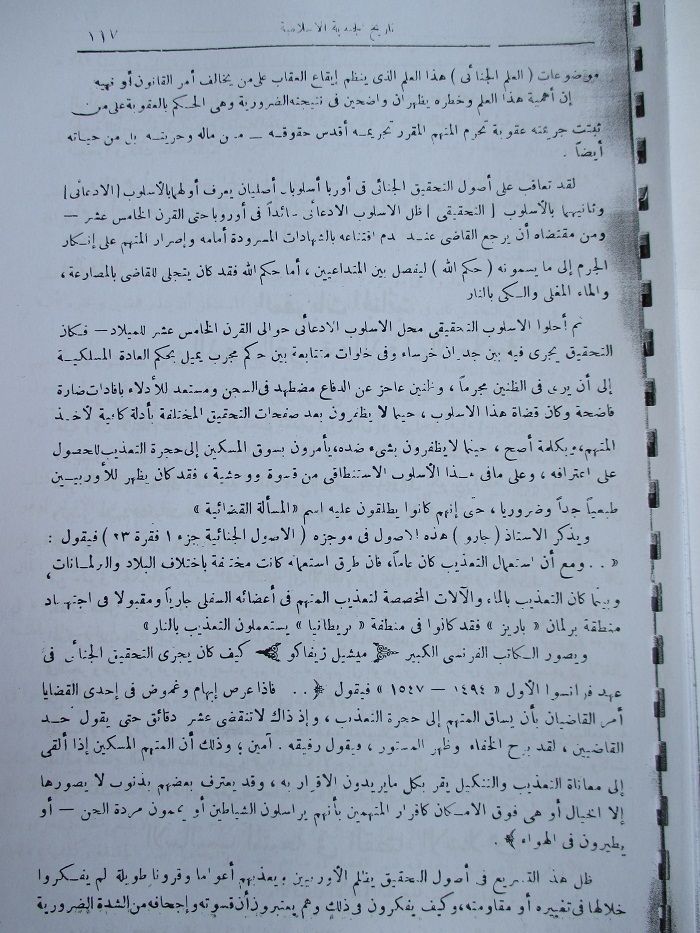 تاريخ الجندية الاسلامية ١١٧
موضوعات ( العلم الجنائى ) هذا العلم الذى ينظم إيقاع العقاب على من يخالف أمر القانون أو نهيه
إن أهمية هذا العلم وخطره يظهران واضحين فى نتيجته الضرورية وهى الحكم بالعقوبة على من
ثبتت جريمته عقوبة تحرم المتهم المقرر تجريمه أقدس حقوقه — من ماله وحريته بل من حياته
أيضاً .
لقد تعاقب على أصول التحقيق الجنائى فى أوربا أسلوبان أصليان يعرف أولهما بالأسلوب [ الادعائى ]
وثانيهما بالأسلوب [ التحقيقى ] ظل الاسلوب الادعائى سائداً فى أوروبا حتى القرن الخامس عشر —
ومن مقتضاه أن يرجع القاضى عند عدم اقتناعه بالشهادات المسرودة أمامه وإصرار المتهم على إنكار
الجرم إلى ما يسمونه ( حكم الله ) ليفصل بين المتداعيين ، أما حكم الله فقد كان يتجلى للقاضى بالمصارعة ،
والماء المغلى والكى بالنار
ثم أحلوا الاسلوب التحقيقى محل الاسلوب الادعائى حوالى القرن الخامس عشر للميلاد — فكان
التحقيق يجرى فيه بين جدران خرساء وفى خلوات متتابعة بين حكم مجرب يميل بحكم العادة المسلكية
إلى أن يرى فى الظنين مجرماً ، وظنين عاجز عن الدفاع مضطهد فى السجن ومستعد للأدلاء بافادات ضارة
فاضحة وكان قضاة هذا الاسلوب ، حينما لا يظفرون بعد صفحات التحقيق المختلفة بأدلة كافية لأخذ
المتهم، وبكلمة أصح ، حينما لا يظفرون بشىء ضده، يأمرون بسوق المسكين إلى حجرة التعذيب للحصول
على اعترافه ، وعلى مافى هذا الأسلوب الاستنطاقى من قسوة ووحشية ، فقد كان يظهر للأوربيين
طبيعياً جداً وضروريا ، حتى إنهم كانوا يطلقون عليه اسم «المسألة القضائية »
ويذكر الاستاذ ( جارو ) هذه الاصول فى موجزه ( الاصول الجنائية جزء ١ فقرة ٢٣ ) فيقول :
« . . ومع أن استعمال التعذيب كان عاماً، فان طرق استعماله كانت مختلفة باختلاف البلاد والبرلمانات،
وبينما كان التعذيب بالماء والآلات المخصصة لتعذيب المتهم فى أعضائه السفلى جارياً ومقبولا فى اجتهاد
منطقة برلمان « باريز » فقد كانوا فى منطقة « بريطانيا » يستعملون التعذيب بالنار»
ويصور الكاتب الفرنسى الكبير ميشيل زيفاكو كيف كان يجرى التحقيق الجنائى فى
عهد فرانسوا الأول « ١٤٩٤ — ١٥٤٧ » فيقول ﴿ . . فاذا عرض إبهام وغموض فى إحدى القضايا
أمر القاضيان بأن يساق المتهم إلى حجرة التعذيب ، وإذ ذاك لا تنقضى عشر دقائق حتى يقول أحد
القاضيين ، لقد برح الخفاء وظهر المستور ، ويقول رفيقه . آمين ؛ وذلك أن المتهم المسكين إذا ألقى
إلى معاناة التعذيب والتنكيل يقر بكل ما يريدون الاقرار به ، وقد يعترف بعضهم بذنوب لا يصورها
إلا الخيال أو هى فوق الامكان كاقرار المتهمين بأنهم يراسلون الشياطين أو مردة الجن — أو
يطيرون فى الهواء ﴾ .
ظل هذا التشريع فى أصول التحقيق يظلم الأوربيين ويعذبهم أعواما وقرونا طويلة لم يفكروا
خلالها فى تغييره أو مقاومته، وكيف يفكرون فى ذلك وهم يعتبرون أن قسوته وإجحافه من الشدة الضرورية